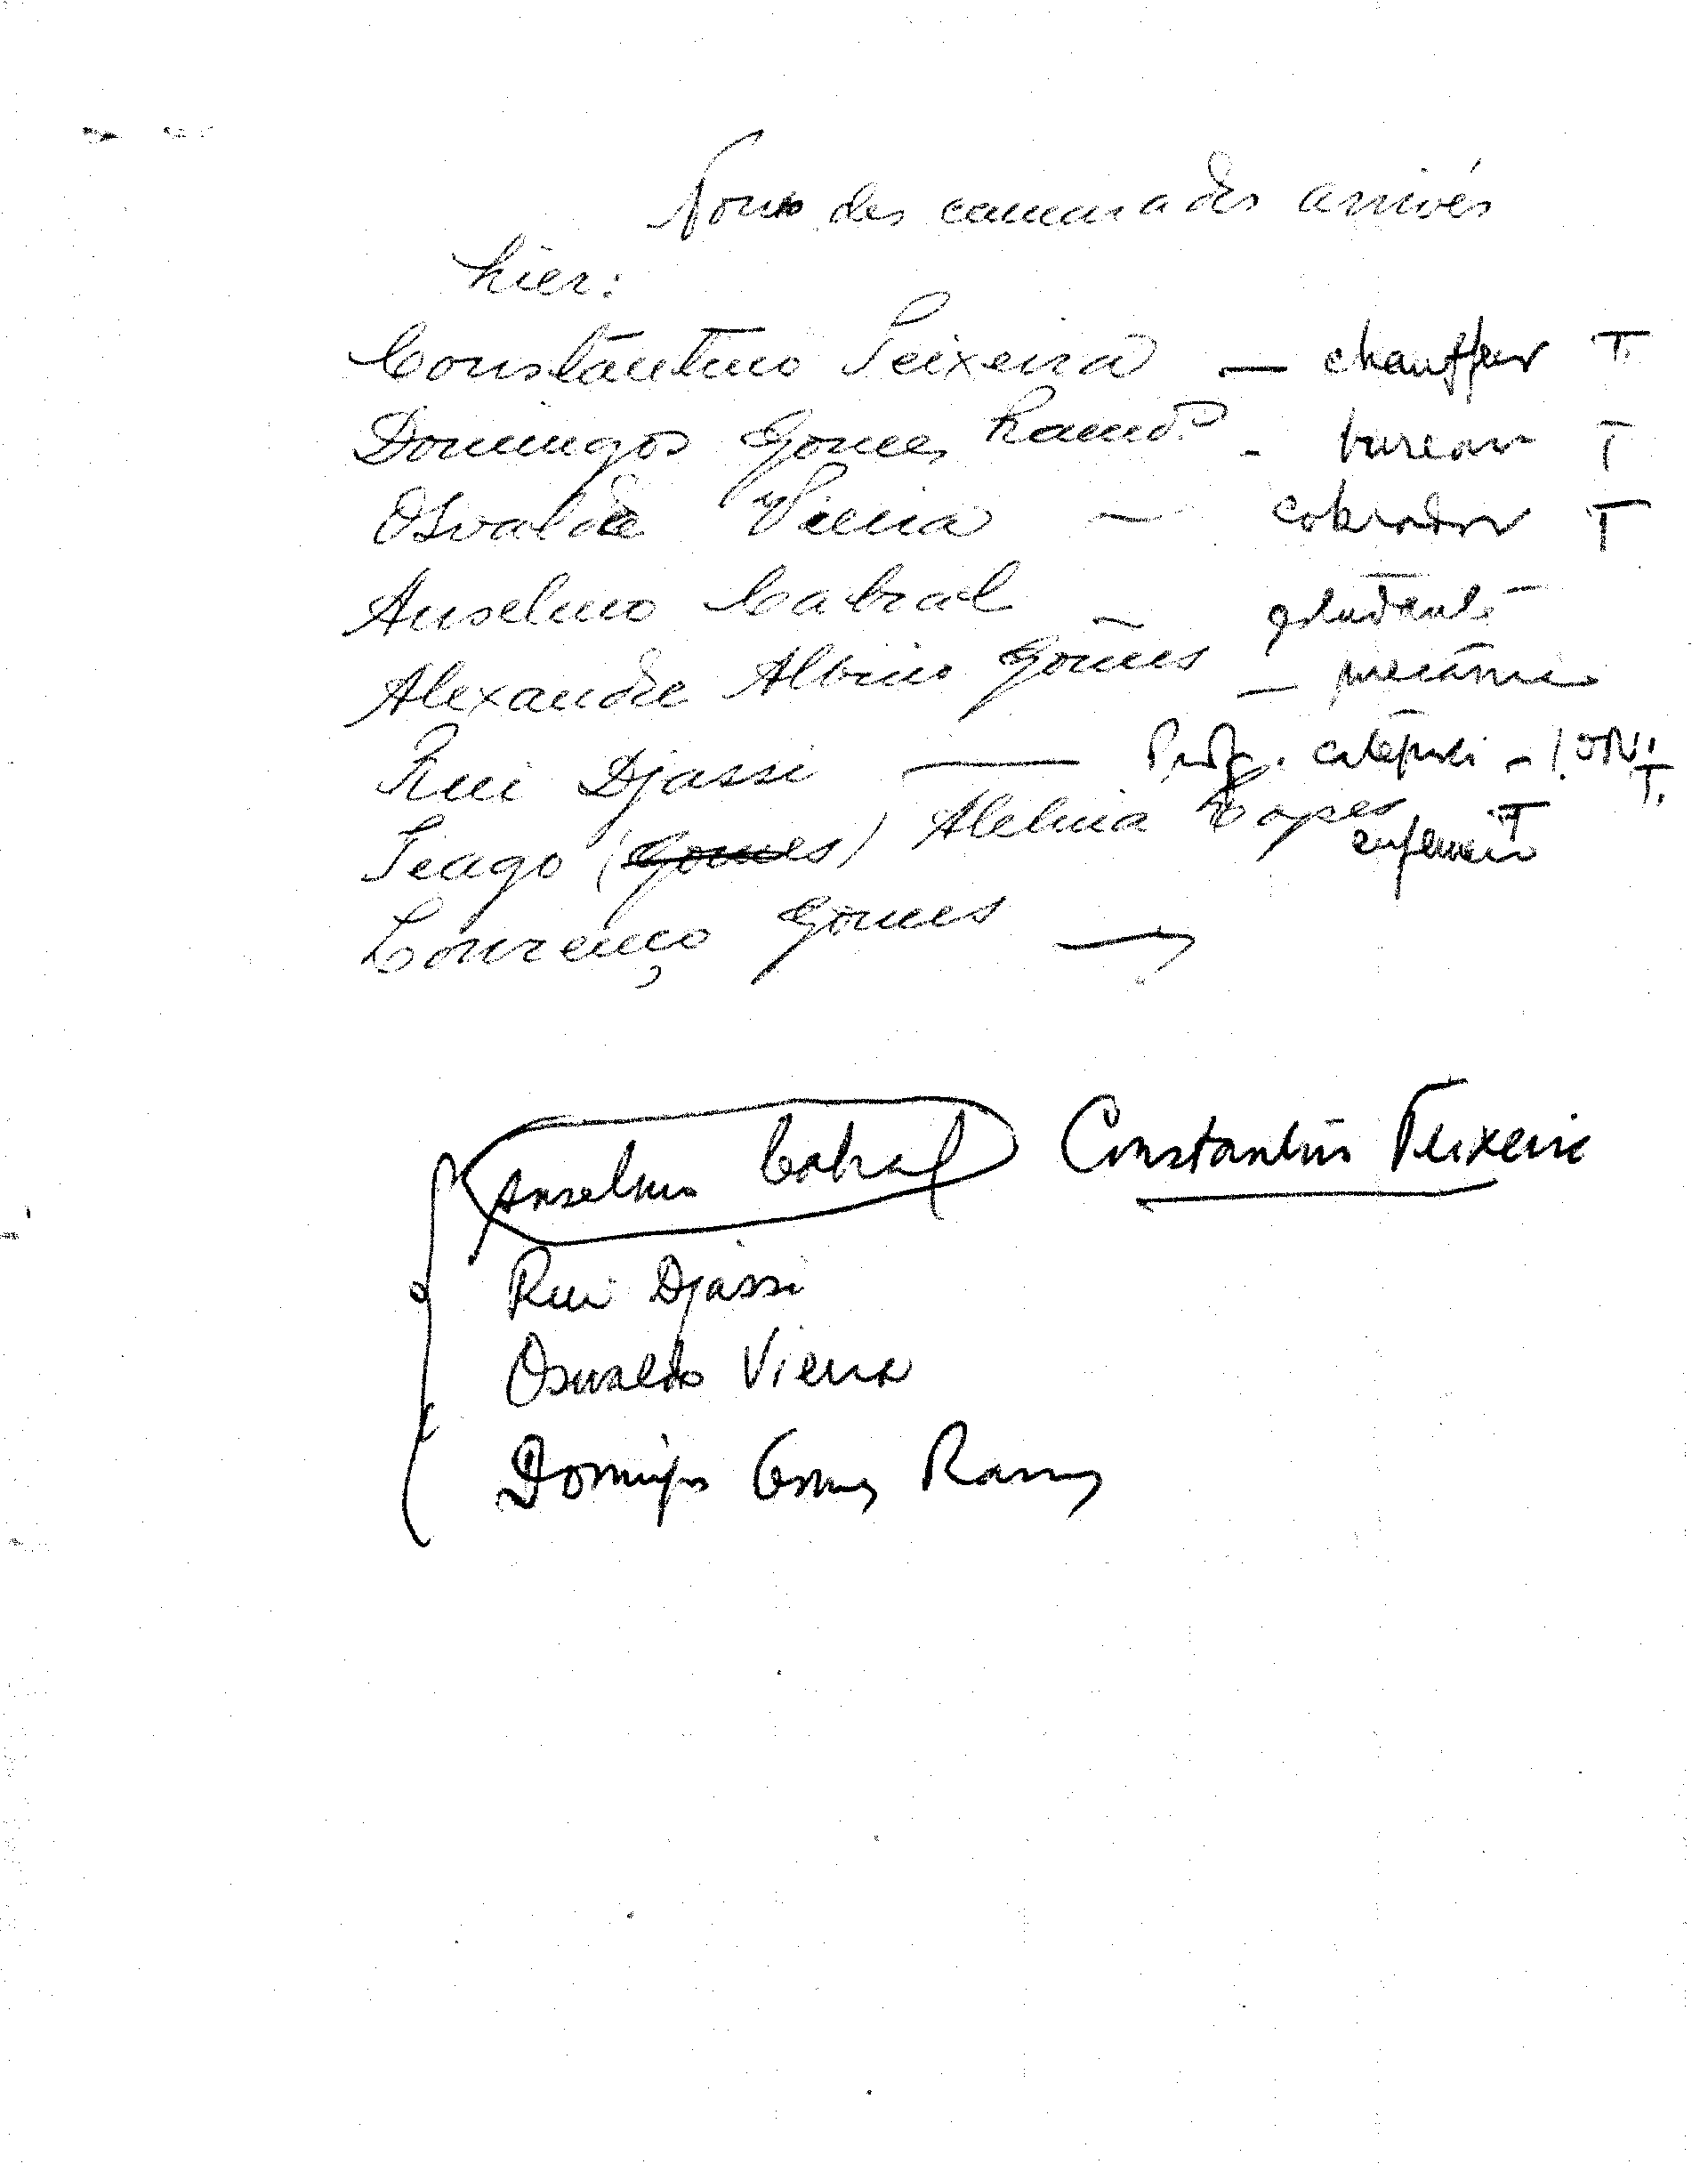 Noms des camarades arrivés
hier:
Constantino Teixeira — chauffeur T.
Domingos Gomes Ramos - bureau T
Osvaldo Vieira — cobrador T
Anselmo Cabral — estudante
Alexandre Albino Gomes — mecânico
Rui Djassi — T.
Tiago (Gomes) Aleluia Lopes T
enfermeiro
Lourenço Gomes —
Anselmo Cabral Constantino Teixeira
Rui Djassi
Osvaldo Vieira
Domingos Gomes Ramos